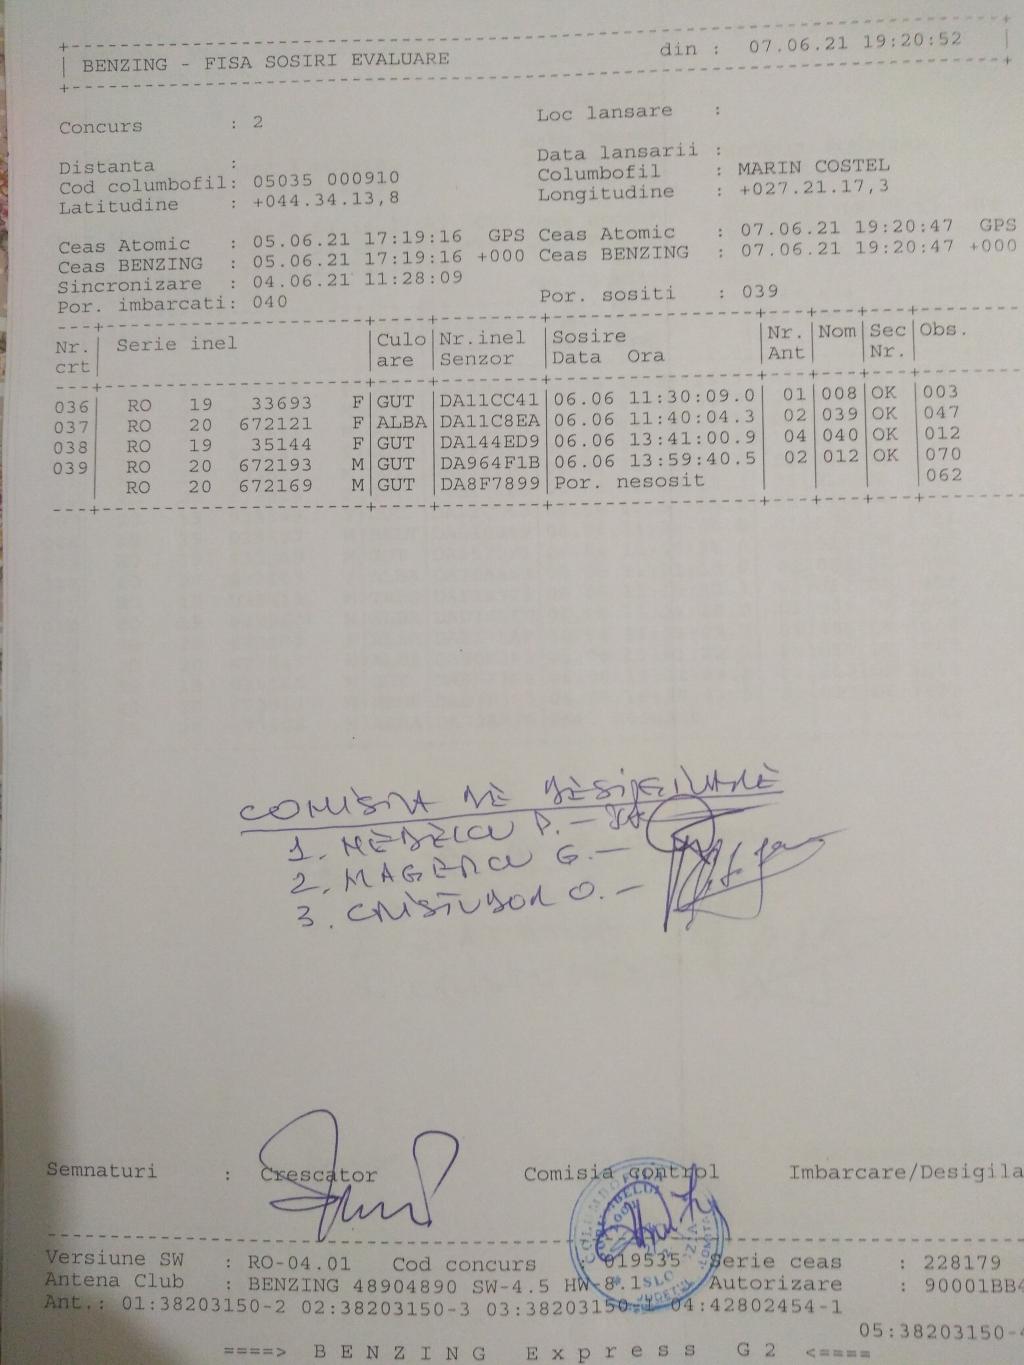 BENZING - FISA SOSIRI EVALUARE din : 07.06.21 19:20:52
Concurs : 2 Loc lansare :
Distanta : Data lansarii :
Cod columbofil: 05035 000910 Columbofil : MARIN COSTEL
Latitudine : +044.34.13,8 Longitudine : +027.21.17,3
Ceas Atomic : 05.06.21 17:19:16 GPS Ceas Atomic : 07.06.21 19:20:47 GPS
Ceas BENZING : 05.06.21 17:19:16 +000 Ceas BENZING : 07.06.21 19:20:47 +000
Sincronizare : 04.06.21 11:28:09
Por. imbarcati: 040 Por. sositi : 039
Nr. Serie inel Culo Nr.inel Sosire Nr. Nom Sec Obs.
crt are Senzor Data Ora Ant Nr.
036 RO 19 33693 F GUT DA11CC41 06.06 11:30:09.0 01 008 OK 003
037 RO 20 672121 F ALBA DA11C8EA 06.06 11:40:04.3 02 039 OK 047
038 RO 19 35144 F GUT DA144ED9 06.06 13:41:00.9 04 040 OK 012
039 RO 20 672193 M GUT DA964F1B 06.06 13:59:40.5 02 012 OK 070
RO 20 672169 M GUT DA8F7899 Por. nesosit 062
COMISIA DE DESIGILARE
1. NEDELCU P. -
2. MAGEARU G. -
3. CRISTUDOR O. -
Semnaturi : Crescator Comisia control Imbarcare/Desigila
Versiune SW : RO-04.01 Cod concurs : 019535 Serie ceas : 228179
Antena Club : BENZING 48904890 SW-4.5 HW-8.1 Autorizare : 90001BB4
Ant.: 01:38203150-2 02:38203150-3 03:38203150-1 04:42802454-1
05:38203150-4
====> BENZING Express G2 <====